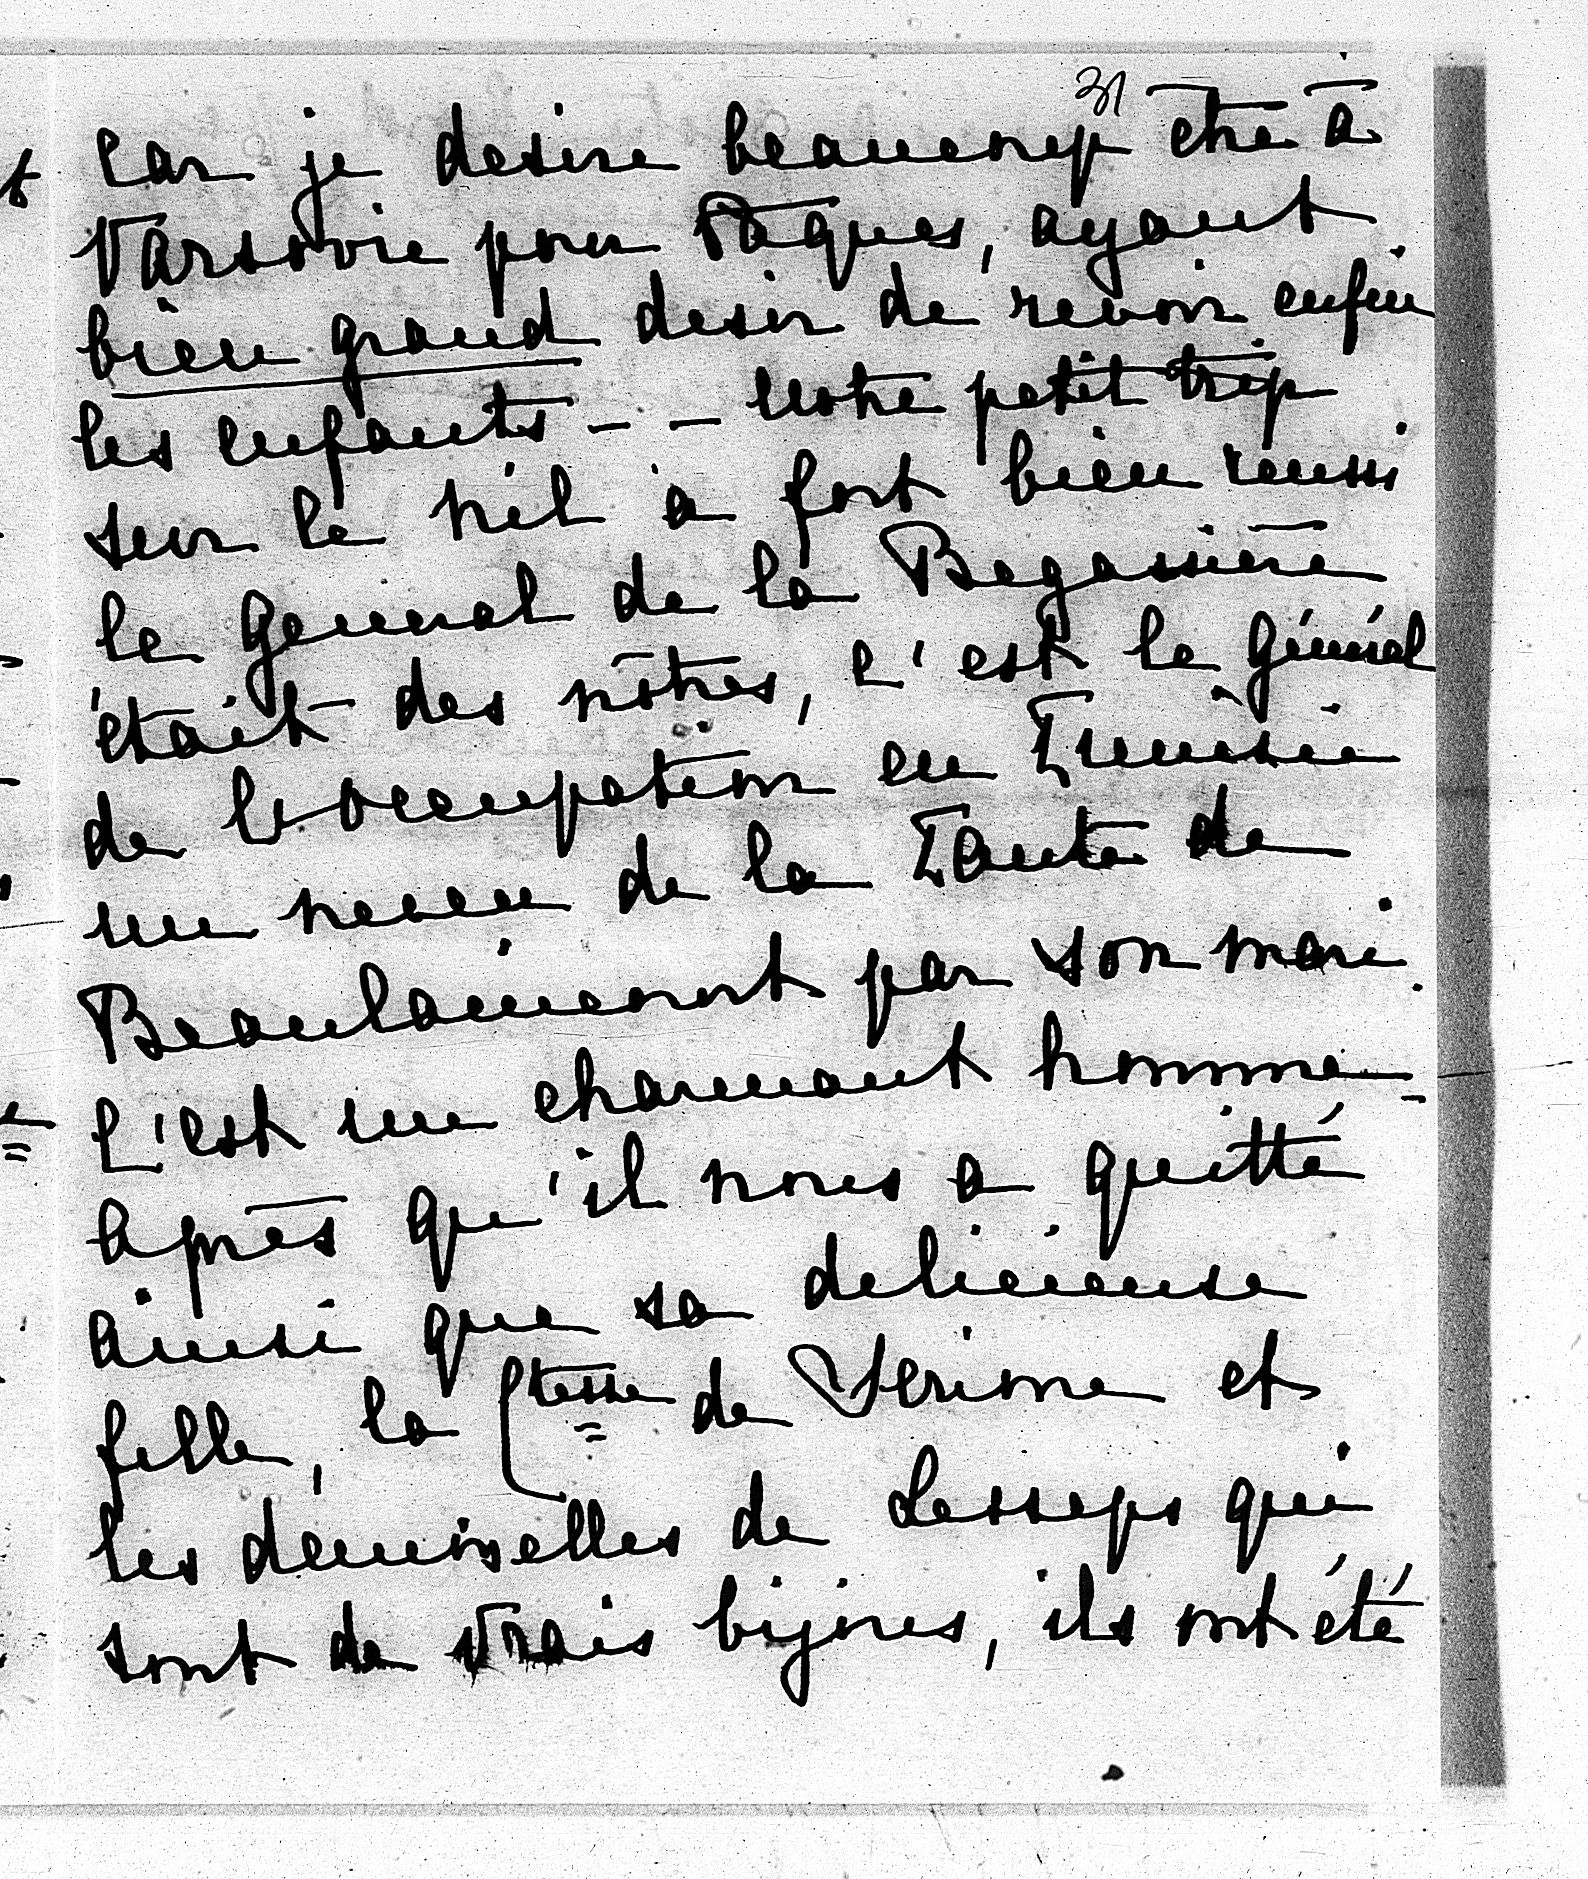 31
Car je desire beaucoup être à
Varsovie pour Pâques, ayant
bien grand desir de revoir enfin
les enfants - - Notre petit trip
sur le Nil a fort bien reussi
le General de la Begassière
était des nôtres, c'est le Général
de l'occupation en Tunisie
un neveu de la Tante de
Beaulaincourt par son mari.
C'est un charmant homme -
après qu'il nous a quitté
ainsi que sa delicieuse
fille, la Ctesse de Serione et
les demoiselles de Lesseps qui
sont de vrais bijoues, ils ont été